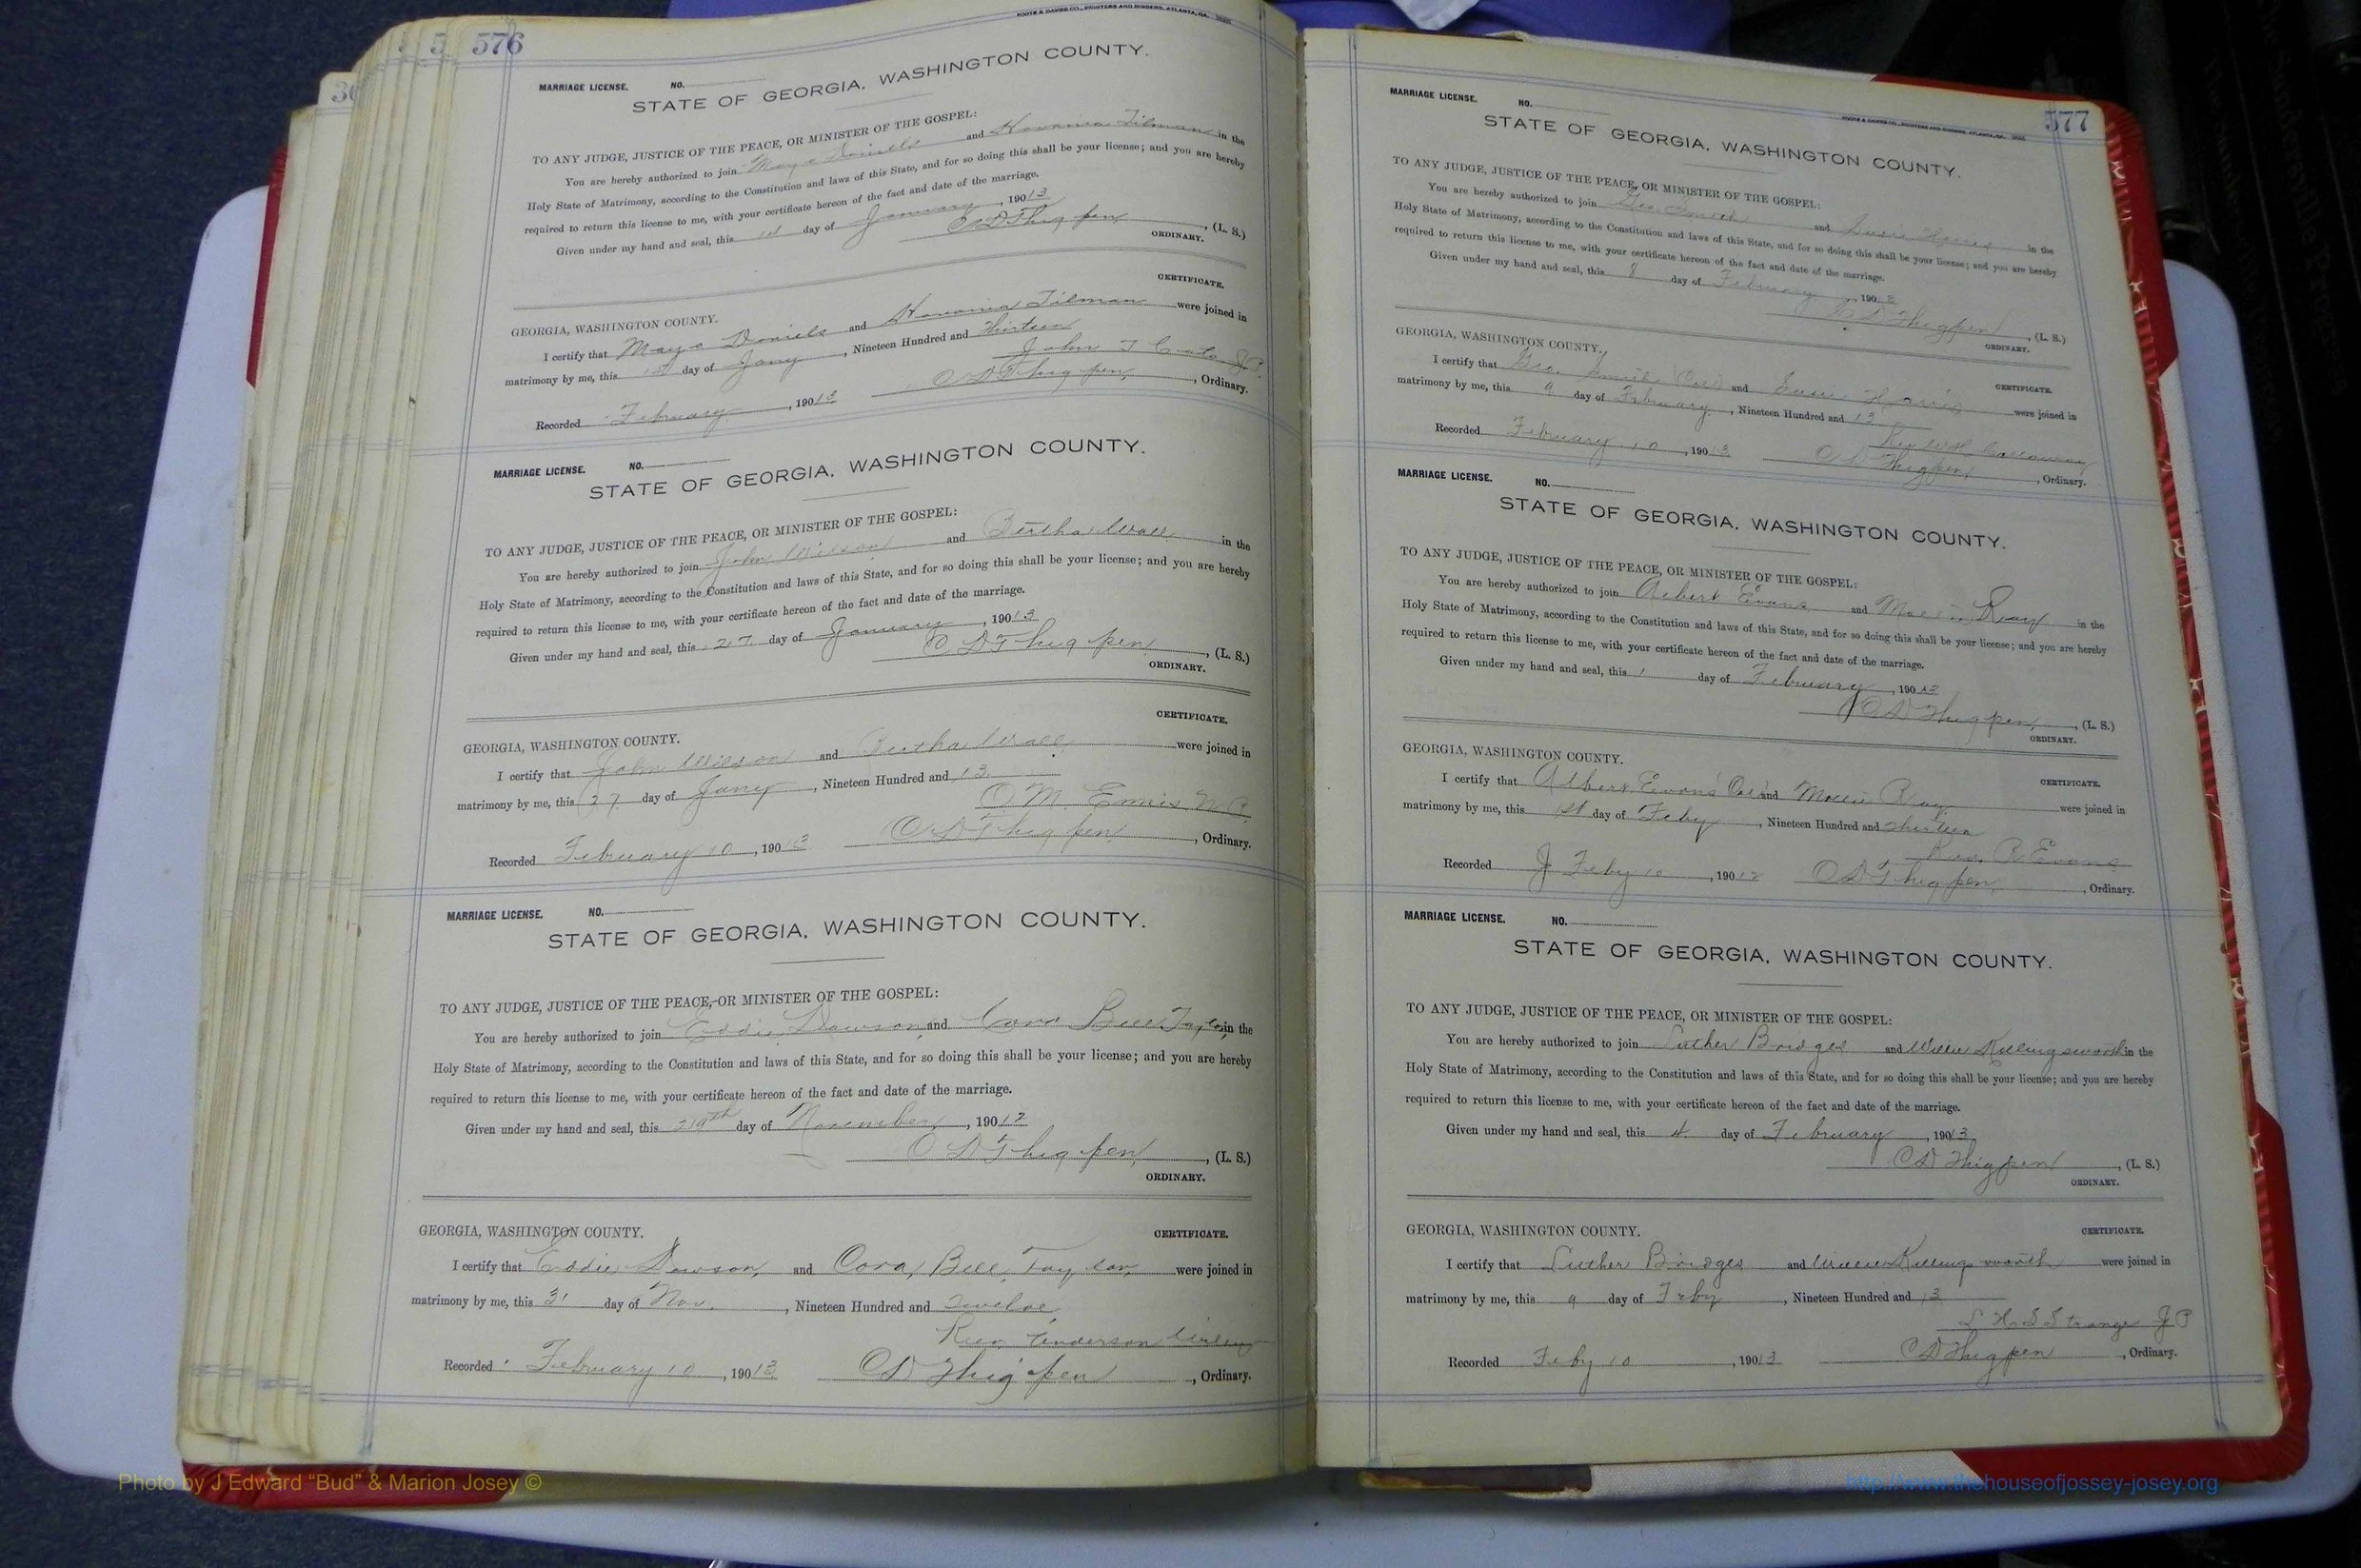 576
MARRIAGE LICENSE. NO.
STATE OF GEORGIA, WASHINGTON COUNTY.
TO ANY JUDGE, JUSTICE OF THE PEACE, OR MINISTER OF THE GOSPEL:
You are hereby authorized to join Daniels and Tilman in the
Holy State of Matrimony, according to the Constitution and laws of this State, and for so doing this shall be your license; and you are hereby
required to return this license to me, with your certificate hereon of the fact and date of the marriage.
Given under my hand and seal, this 1st day of January, 19013
C D Thigpen, (L. S.)
ORDINARY.
CERTIFICATE.
GEORGIA, WASHINGTON COUNTY.
I certify that Daniels and Tilman were joined in
matrimony by me, this 1st day of Jany, Nineteen Hundred and Thirteen
John T J.P.
Recorded February, 19013 C D Thigpen, Ordinary.
MARRIAGE LICENSE. NO.
STATE OF GEORGIA, WASHINGTON COUNTY.
TO ANY JUDGE, JUSTICE OF THE PEACE, OR MINISTER OF THE GOSPEL:
You are hereby authorized to join John Wilson and Bertha Wall in the
Holy State of Matrimony, according to the Constitution and laws of this State, and for so doing this shall be your license; and you are hereby
required to return this license to me, with your certificate hereon of the fact and date of the marriage.
Given under my hand and seal, this 27 day of January, 19013
C D Thigpen, (L. S.)
ORDINARY.
CERTIFICATE.
GEORGIA, WASHINGTON COUNTY.
I certify that John Wilson and Bertha Wall were joined in
matrimony by me, this 27 day of Jany, Nineteen Hundred and 13
O M Ennis N.P.
Recorded February 10, 19013 C D Thigpen, Ordinary.
MARRIAGE LICENSE. NO.
STATE OF GEORGIA, WASHINGTON COUNTY.
TO ANY JUDGE, JUSTICE OF THE PEACE, OR MINISTER OF THE GOSPEL:
You are hereby authorized to join Eddie Dawson and Cora Bell Taylor in the
Holy State of Matrimony, according to the Constitution and laws of this State, and for so doing this shall be your license; and you are hereby
required to return this license to me, with your certificate hereon of the fact and date of the marriage.
Given under my hand and seal, this day of November, 19012
C D Thigpen, (L. S.)
ORDINARY.
CERTIFICATE.
GEORGIA, WASHINGTON COUNTY.
I certify that Eddie Dawson, and Cora Bell Taylor were joined in
matrimony by me, this 31 day of Nov., Nineteen Hundred and Twelve
Rev.
Recorded February 10, 19013 C D Thigpen, Ordinary.
577
MARRIAGE LICENSE. NO.
STATE OF GEORGIA, WASHINGTON COUNTY.
TO ANY JUDGE, JUSTICE OF THE PEACE, OR MINISTER OF THE GOSPEL:
You are hereby authorized to join Geo Smith and Susie Harris in the
Holy State of Matrimony, according to the Constitution and laws of this State, and for so doing this shall be your license; and you are hereby
required to return this license to me, with your certificate hereon of the fact and date of the marriage.
Given under my hand and seal, this 8 day of February, 190
C D Thigpen, (L. S.)
ORDINARY.
GEORGIA, WASHINGTON COUNTY.
CERTIFICATE.
I certify that Geo Smith (Col) and Susie Harris were joined in
matrimony by me, this 9 day of February, Nineteen Hundred and 13
Rev
Recorded February 10, 19013 C D Thigpen, Ordinary.
MARRIAGE LICENSE. NO.
STATE OF GEORGIA, WASHINGTON COUNTY.
TO ANY JUDGE, JUSTICE OF THE PEACE, OR MINISTER OF THE GOSPEL:
You are hereby authorized to join Albert Evans and Mollie Ray in the
Holy State of Matrimony, according to the Constitution and laws of this State, and for so doing this shall be your license; and you are hereby
required to return this license to me, with your certificate hereon of the fact and date of the marriage.
Given under my hand and seal, this 1 day of February, 19013
C D Thigpen, (L. S.)
ORDINARY.
GEORGIA, WASHINGTON COUNTY.
CERTIFICATE.
I certify that Albert Evans Col and Mollie Ray were joined in
matrimony by me, this 1st day of Feby, Nineteen Hundred and Thirteen
Rev. R Evans
Recorded Feby 10, 190 C D Thigpen, Ordinary.
MARRIAGE LICENSE. NO.
STATE OF GEORGIA, WASHINGTON COUNTY.
TO ANY JUDGE, JUSTICE OF THE PEACE, OR MINISTER OF THE GOSPEL:
You are hereby authorized to join Luther Bridges and Willie Killingsworth in the
Holy State of Matrimony, according to the Constitution and laws of this State, and for so doing this shall be your license; and you are hereby
required to return this license to me, with your certificate hereon of the fact and date of the marriage.
Given under my hand and seal, this 4 day of February, 19013
C D Thigpen, (L. S.)
ORDINARY.
GEORGIA, WASHINGTON COUNTY.
CERTIFICATE.
I certify that Luther Bridges and Willie Killingsworth were joined in
matrimony by me, this 9 day of Feby, Nineteen Hundred and 13
Strange J P
Recorded Feby 10, 19013 C D Thigpen, Ordinary.
Photo by J Edward “Bud” & Marion Josey ©
http://www.thehouseofjossey-josey.org